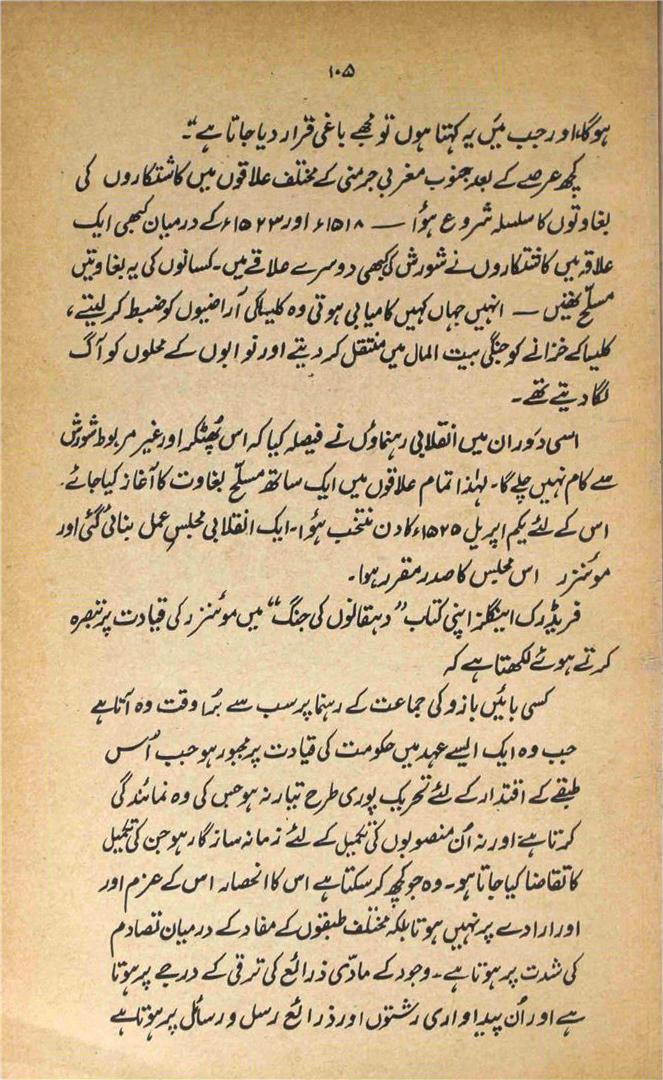 ۱۰۵
ہوگا، اور جب میں یہ کہتا ہوں تو مجھے باغی قرار دیا جاتا ہے"۔
کچھ عرصے کے بعد جنوب مغربی جرمنی کے مختلف علاقوں میں کاشتکاروں کی
بغاوتوں کا سلسلہ شروع ہؤا — ۱۵۱۸ء اور ۱۵۲۳ء کے درمیان کبھی ایک
علاقہ میں کاشتکاروں نے شورش کی کبھی دوسرے علاقے میں۔ کسانوں کی یہ بغاوتیں
مسلّح تھیں — انہیں جہاں کہیں کامیابی ہوتی وہ کلیسا کی آراضیوں کو ضبط کر لیتے،
کلیسا کے خزانے کو جنگی بیت المال میں منتقل کر دیتے اور نوابوں کے محلوں کو آگ
لگا دیتے تھے۔
اسی دَوران میں انقلابی رہنماؤں نے فیصلہ کیا کہ اس پُھٹکر اور غیر مربوط شورش
سے کام نہیں چلے گا۔ لہٰذا تمام علاقوں میں ایک ساتھ مسلّح بغاوت کا آغاز کیا جائے۔
اس کے لئے یکم اپریل ۱۵۲۵ء کا دن منتخب ہؤا۔ ایک انقلابی مجلسِ عمل بنائی گئی اور
موئنزر اس مجلس کا صدر مقرر ہوا۔
فریڈرک اینگلز اپنی کتاب "دہقانوں کی جنگ" میں موئنزر کی قیادت پر تبصرہ
کرتے ہوئے لکھتا ہے کہ
کسی بائیں بازو کی جماعت کے رہنما پر سب سے بُرا وقت وہ آتا ہے
جب وہ ایک ایسے عہد میں حکومت کی قیادت پر مجبور ہو جب اُس
طبقے کے اقتدار کے لئے تحریک پوری طرح تیار نہ ہو جس کی وہ نمائندگی
کرتا ہے اور نہ اُن منصوبوں کی تکمیل کے لئے زمانہ سازگار ہو جن کی تکمیل
کا تقاضا کیا جاتا ہو۔ وہ جو کچھ کر سکتا ہے اس کا انحصار اس کے عزم اور
اور ارادے پر نہیں ہوتا بلکہ مختلف طبقوں کے مفاد کے درمیان تصادم
کی شدت پر ہوتا ہے۔ وجود کے مادّی ذرائع کی ترقی کے درجے پر ہوتا
ہے اور اُن پیداواری رشتوں اور ذرائع رسل و رسائل پر ہوتا ہے